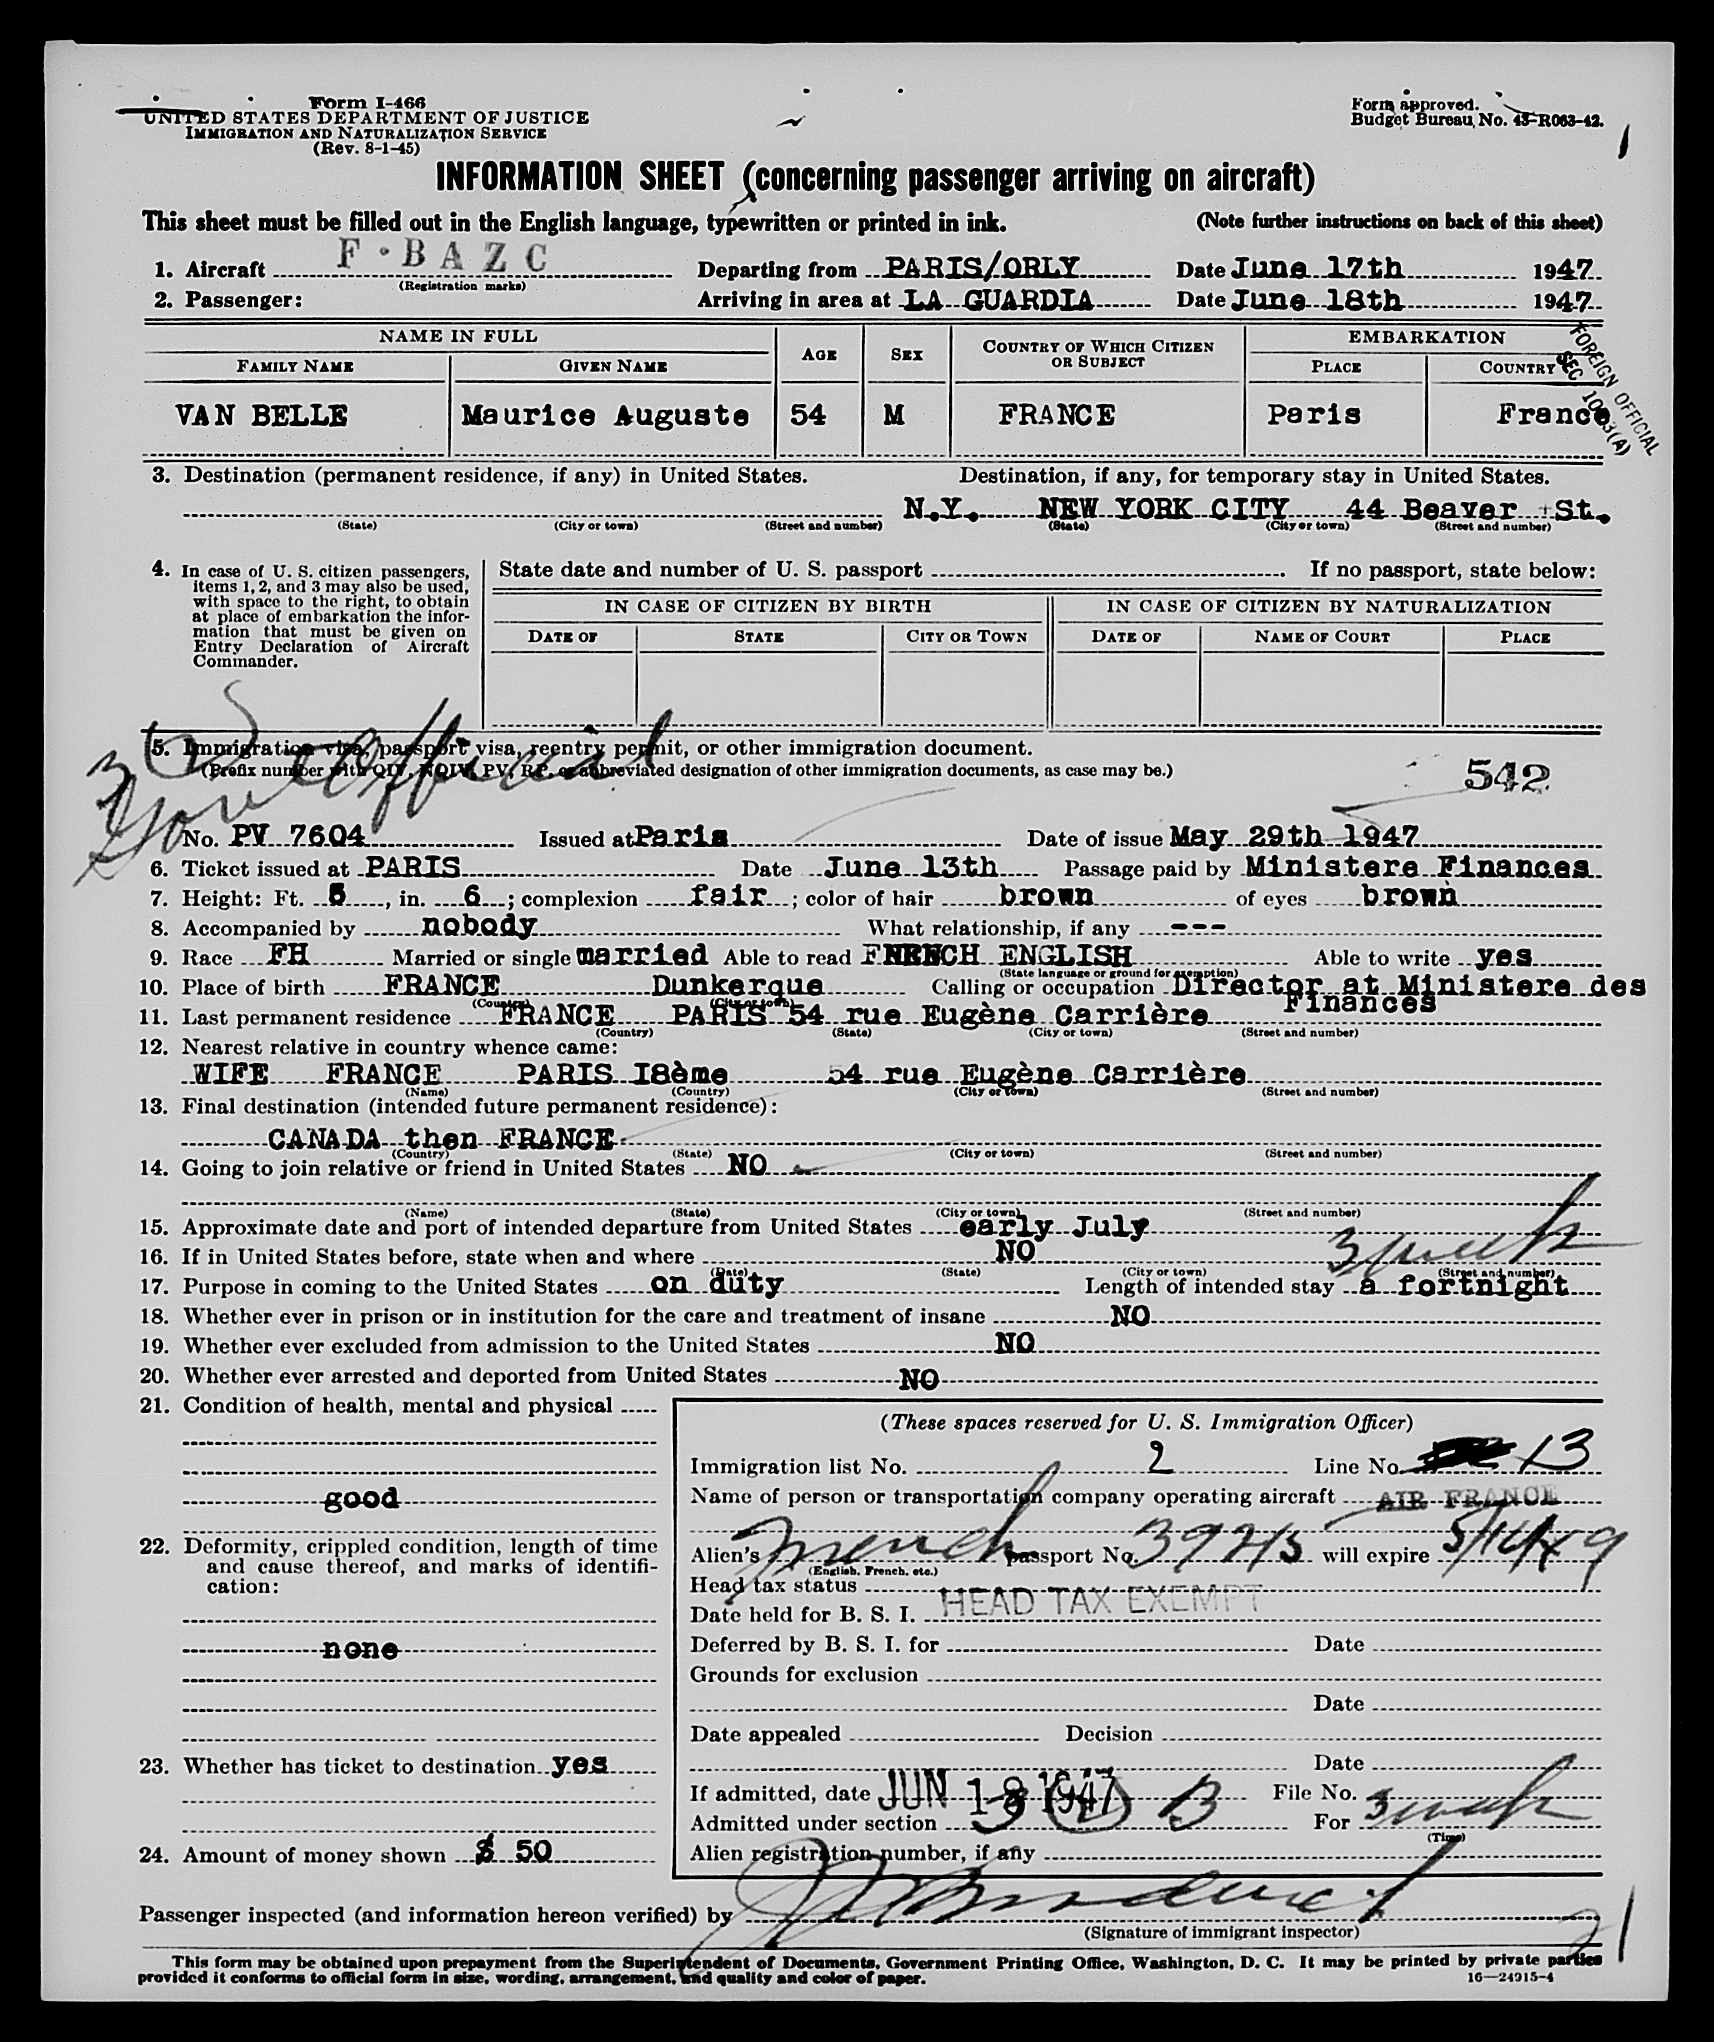 Form I-466
UNITED STATES DEPARTMENT OF JUSTICE
IMMIGRATION AND NATURALIZATION SERVICE
(Rev. 8-1-45)
Form approved.
Budget Bureau No. 43-R063-42.
INFORMATION SHEET (concerning passenger arriving on aircraft)
This sheet must be filled out in the English language, typewritten or printed in ink. (Note further instructions on back of this sheet)
1. Aircraft F·BAZC Departing from PARIS/ORLY Date June 17th 1947
(Registration marks)
2. Passenger: Arriving in area at LA GUARDIA Date June 18th 1947
NAME IN FULL AGE SEX COUNTRY OF WHICH CITIZEN OR SUBJECT EMBARKATION
FAMILY NAME GIVEN NAME PLACE COUNTRY
FOREIGN OFFICIAL
VAN BELLE Maurice Auguste 54 M FRANCE Paris France
3. Destination (permanent residence, if any) in United States. Destination, if any, for temporary stay in United States.
N.Y. NEW YORK CITY 44 Beaver St.
(State) (City or town) (Street and number) (State) (City or town) (Street and number)
4. In case of U. S. citizen passengers, items 1, 2, and 3 may also be used, with space to the right, to obtain at place of embarkation the information that must be given on Entry Declaration of Aircraft Commander.
State date and number of U. S. passport If no passport, state below:
IN CASE OF CITIZEN BY BIRTH IN CASE OF CITIZEN BY NATURALIZATION
DATE OF STATE CITY OR TOWN DATE OF NAME OF COURT PLACE
5. Immigration visa, passport visa, reentry permit, or other immigration document.
(Prefix number with QIV, NQIV, PV, RP, or abbreviated designation of other immigration documents, as case may be.)
542
Official
No. PV 7604 Issued at Paris Date of issue May 29th 1947
6. Ticket issued at PARIS Date June 13th Passage paid by Ministere Finances
7. Height: Ft. 5, in. 6; complexion fair; color of hair brown of eyes brown
8. Accompanied by nobody What relationship, if any ---
9. Race FH Married or single married Able to read FRENCH ENGLISH Able to write yes
(State language or ground for exemption)
10. Place of birth FRANCE Dunkerque Calling or occupation Director at Ministere des Finances
(Country) (City or town)
11. Last permanent residence FRANCE PARIS 54 rue Eugène Carrière
(Country) (State) (City or town) (Street and number)
12. Nearest relative in country whence came:
WIFE FRANCE PARIS I8ème 54 rue Eugène Carrière
(Name) (Country) (City or town) (Street and number)
13. Final destination (intended future permanent residence):
CANADA then FRANCE
(Country) (State) (City or town) (Street and number)
14. Going to join relative or friend in United States NO
(Name) (State) (City or town) (Street and number)
15. Approximate date and port of intended departure from United States early July
16. If in United States before, state when and where NO
(Date) (State) (City or town) (Street and number)
17. Purpose in coming to the United States on duty Length of intended stay a fortnight
18. Whether ever in prison or in institution for the care and treatment of insane NO
19. Whether ever excluded from admission to the United States NO
20. Whether ever arrested and deported from United States NO
21. Condition of health, mental and physical
good
22. Deformity, crippled condition, length of time and cause thereof, and marks of identification:
none
23. Whether has ticket to destination yes
24. Amount of money shown $ 50
(These spaces reserved for U. S. Immigration Officer)
Immigration list No. 2 Line No. 13
Name of person or transportation company operating aircraft AIR FRANCE
Alien's French passport No. 39213 will expire 5/14/49
(English, French, etc.)
Head tax status HEAD TAX EXEMPT
Date held for B. S. I.
Deferred by B. S. I. for Date
Grounds for exclusion
Date
Date appealed Decision
Date
If admitted, date JUN 18 1947 File No.
Admitted under section 3 (1) B For 3 weeks
(Time)
Alien registration number, if any
Passenger inspected (and information hereon verified) by
(Signature of immigrant inspector)
21
This form may be obtained upon prepayment from the Superintendent of Documents, Government Printing Office, Washington, D. C. It may be printed by private parties
provided it conforms to official form in size, wording, arrangement, and quality and color of paper.
16—24915-4